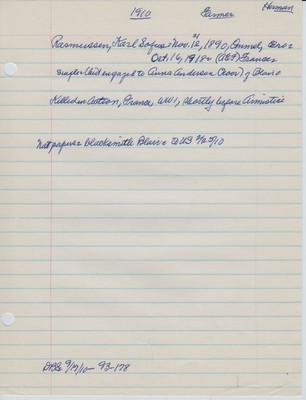 1910 Farmer Herman
Rasmussen, Karl Sofus Nov. 12, 1890, Ommel, Æroe
Oct. 16, 1918 + (AEF) France
single (but engaged to Anna Andersen (Koor) of Blair
Killed in action, France, WWI, shortly before Armistice
Nat papers blacksmith Blair 2/25/10
DBS 9/14/10 - 93-178